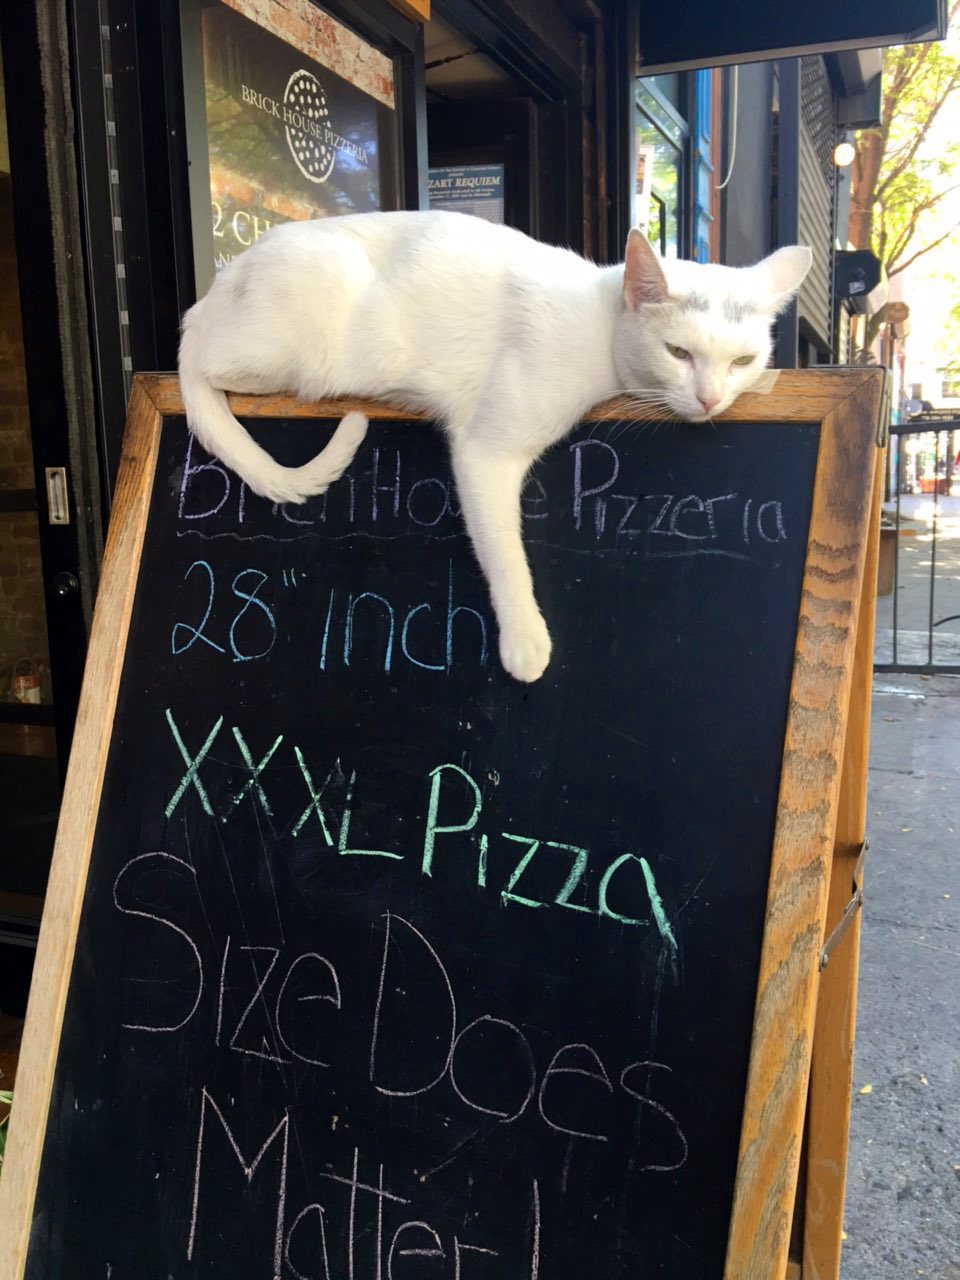 BRICK HOUSE PIZZERIA
ZART REQUIEM
2 CH
Pizzeria
28" inch
XXXL Pizza
Size Does
Matter!